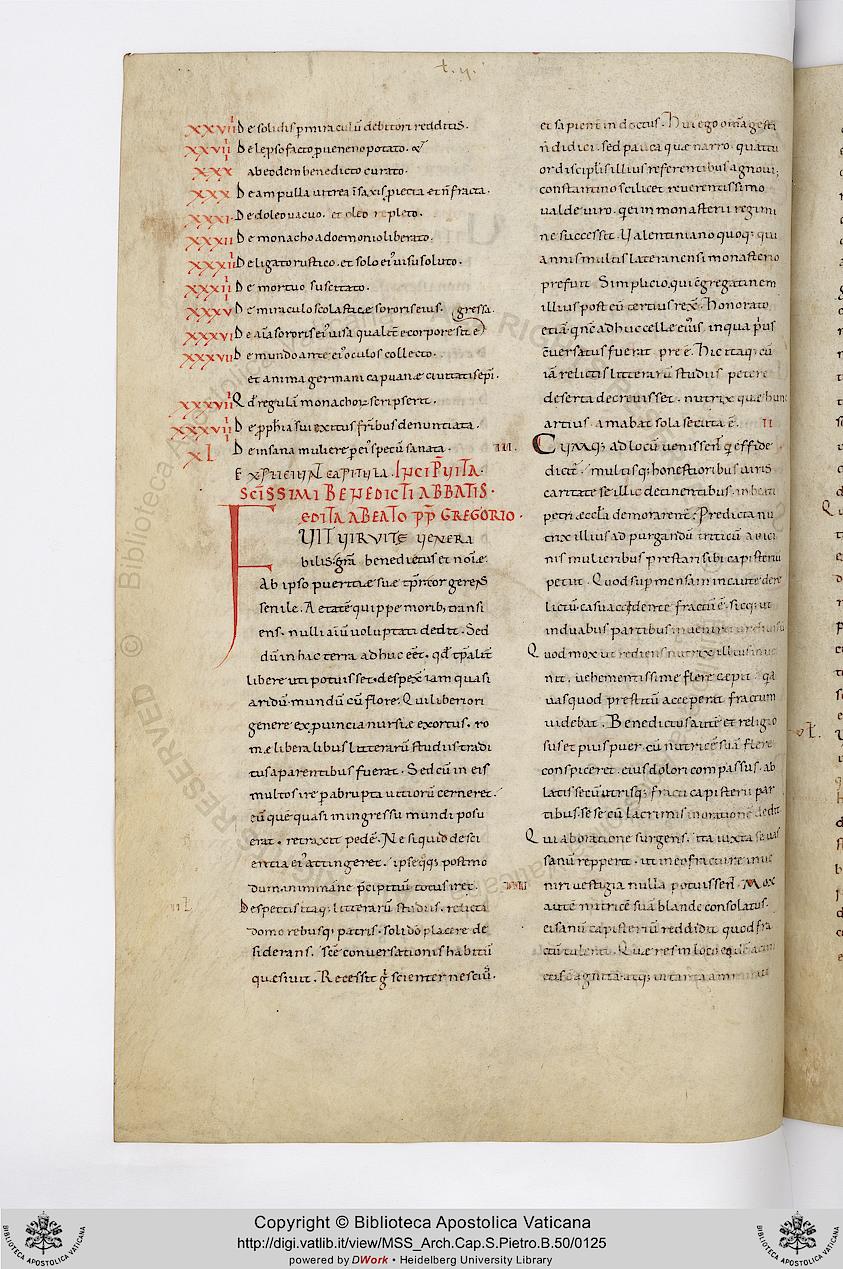 XXVIII De solidis p miraculū debitori redditis.
XXVIIII De lepso facto p ueneno potato. &
XXX ab eodem benedicto curato.
XXX De ampulla uitrea ī saxis piecta et n̄ fracta.
XXXI De doleo uacuo. et oleo repleto.
XXXII De monacho a doemonio liberato.
XXXIII De ligato rustico. et solo ei' uisu soluto.
XXXIIII De mortuo suscitato.
XXXV De miraculo scolasticę sororis eius. gressa.
XXXVI De aīa sororis ei' uisa qualit̄ e corpore sit e
XXXVII De mundo ante ei' oculos collecto.
et anima germani capuanę ciuitatis ep̄i.
XXXVIII Qđ regulā monachorꝫ scripserit.
XXXVIIII De pphīa sui exitus fr̄ibus denuntiata.
XL De insana muliere p ei' specū sanata.
EXPLICIUNT CAPITULA. INCIP̄ VITA
SC̄ISSIMI BENEDICTI ABBATIS.
EDITA A BEATO PP̄ GREGORIO.
FUIT VIR VITĘ VENERA
bilis. grā benedictus et nōe.
Ab ipso pueritię suę tp̄r cor gerens
senile. Aetatē quippe morib; transi
ens. nulli aīu uoluptati dedit. Sed
dū in hac terra adhuc eēt. qđ tp̄alit̄
libere uti potuisset. despex̄ iam quasi
aridū mundū cū flore. Qui liberiori
genere ex puincia nursię exortus. ro
mę liberalibus litterarū studiis tradi
tus a parentibus fuerat. Sed cū in eis
multos ire p abrupta uitiorū cerneret.
eū quē quasi in ingressu mundi posu
erat. retraxit pedē. Ne si quid de sci
entia ei' attingeret. ipse q̄q; postmo
dum in immane p̄cipitiū totus iret.
Despectis itaq; litterarū studiis. relicta
domo rebusq; patris. soli dō placere de
siderans. scē conuersationis habitū
quesiuit. Recessit g̊ scienter nesciu'.
et sapient̄ indoctus. Hui' ego om̄a gesta
n̄ didici. sed pauca quę narro. quattu
or discipulis illius referentibus agnoui;
constantino scilicet reuerentissimo
ualde uiro. q ei in monasterii regimi
ne successit. Ualentiniano quoq; qui
annis multis lateranensi monasterio
prefuit. Simplicio. qui cgregationem
illius post eū tertius rex̄. Honorato
etiā. qn̄c adhuc cellę ei'. in qua p'us
cuersatus fuerat preē. Hic itaq; cū
iā relictis litterarū studiis petere
deserta decreuisset. nutrix quę hunc
artius amabat sola secuta ē. II
III. Cumq; ad locū uenissent̄ q effide
dicit̄. multisq; honestioribus uiris
caritate se illic detinentibus. in beati
petri ęccl̄a demorarent̄. Predicta nu
trix illius ad purgandū triticū a uici
nis mulieribus prestari sibi capisteriū
petiit. Quod sup mensam incaute dere
lictū. casu accidente fractū ē. sicq; ut
in duabus partibus inueniret̄ diuisū
Quod mox ut rediens nutrix illius inue
nit. uehementissime flere cępit. qa
uas quod prestitū acceperat fractum
uidebat. Benedictus aut̄ et religio
sus et pius puer. cū nutricē suā flere
conspiceret. eius dolori compassus. ab
latis secū utrisq; fracti capisterii par
tibus. sese cū lacrimis in orationē dedit
Qui ab oratione surgens. ita iuxta se uas
sanū repperit. ut in eo fracturę inue
niri uestigia nulla potuissent̄. Mox
aut̄ nutricē suā blande consolatus.
ei sanū capisteriū reddidit quod fra
ctū tulerat. Quę res in loco
est agnita. atq; in tanta ammiratione
Copyright © Biblioteca Apostolica Vaticana
http://digi.vatlib.it/view/MSS_Arch.Cap.S.Pietro.B.50/0125
powered by DWork • Heidelberg University Library